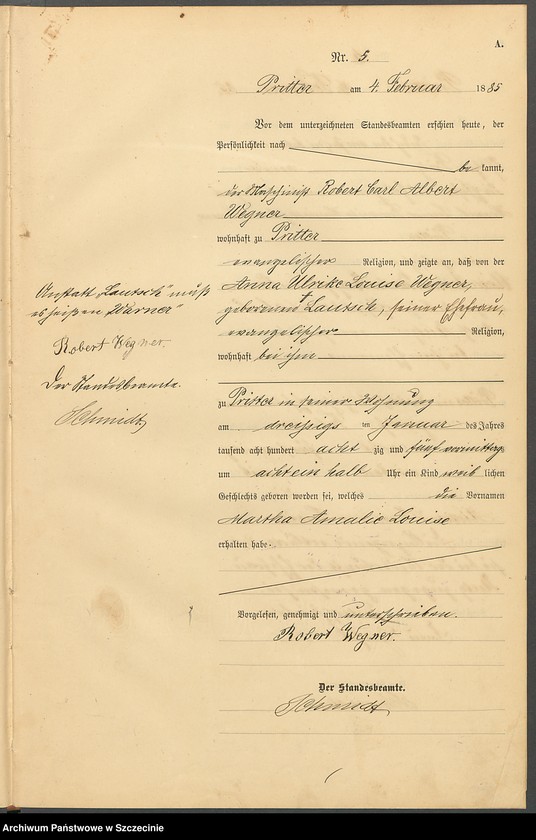 A.
Nr. 5.
Pritter am 4. Februar 1885
Vor dem unterzeichneten Standesbeamten erschien heute, der
Persönlichkeit nach
be kannt,
der Maschinist Robert Carl Albert
Wegner
wohnhaft zu Pritter
evangelischer Religion, und zeigte an, daß von der
Anna Ulrike Louise Wegner,
geborenen Lautsch, seiner Ehefrau,
evangelischer Religion,
wohnhaft bei ihm
zu Pritter in seiner Wohnung
am dreißigs ten Januar des Jahres
tausend acht hundert acht zig und fünf vormittags
um acht ein halb Uhr ein Kind weib lichen
Geschlechts geboren worden sei, welches die Vornamen
Martha Amalie Louise
erhalten habe.
Vorgelesen, genehmigt und unterschrieben.
Robert Wegner.
Der Standesbeamte.
Schmidt
Anstatt „Lautsch" muß
es heißen „Warner"
Robert Wegner
Der Standesbeamte.
Schmidt
Archiwum Państwowe w Szczecinie